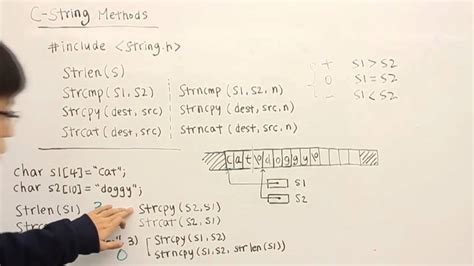 C-String Methods
#include <string.h>
Strlen(S)
Strcmp(S1,S2) Strncmp(S1,S2,n)
Strcpy(dest,src) Strncpy(dest,src,n)
Strcat(dest,src) Strncat(dest,src,n)
+ S1>S2
0 S1=S2
- S1<S2
cat\0doggy\0
S1
S2
char s1[4]="Cat";
char s2[10]="doggy";
Strlen(S1) Strcpy(S2,S1)
Strcat(S2,S1)
3) Strcpy(S1,S2)
0 strncpy(S1,S2,strlen(S1))